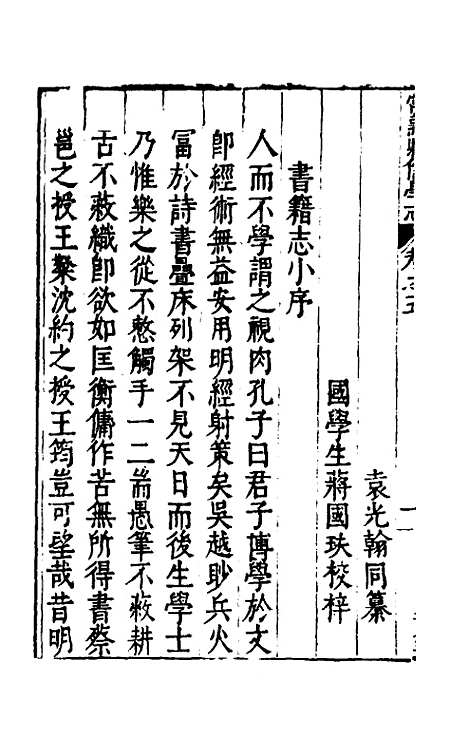 袁光翰同纂
國學生蔣國玞校梓
書籍志小序
人而不學謂之視肉孔子曰君子博學於文
卽經術無益安用明經射策矣吳越眇兵火
富於詩書疊床列架不見天日而後生學士
乃惟樂之從不憗觸手一二耑愚筆不救耕
舌不蔽織卽欲如匡衡傭作苦無所得書蔡
邕之授王粲沈約之授王筠豈可望哉昔明
卷之五